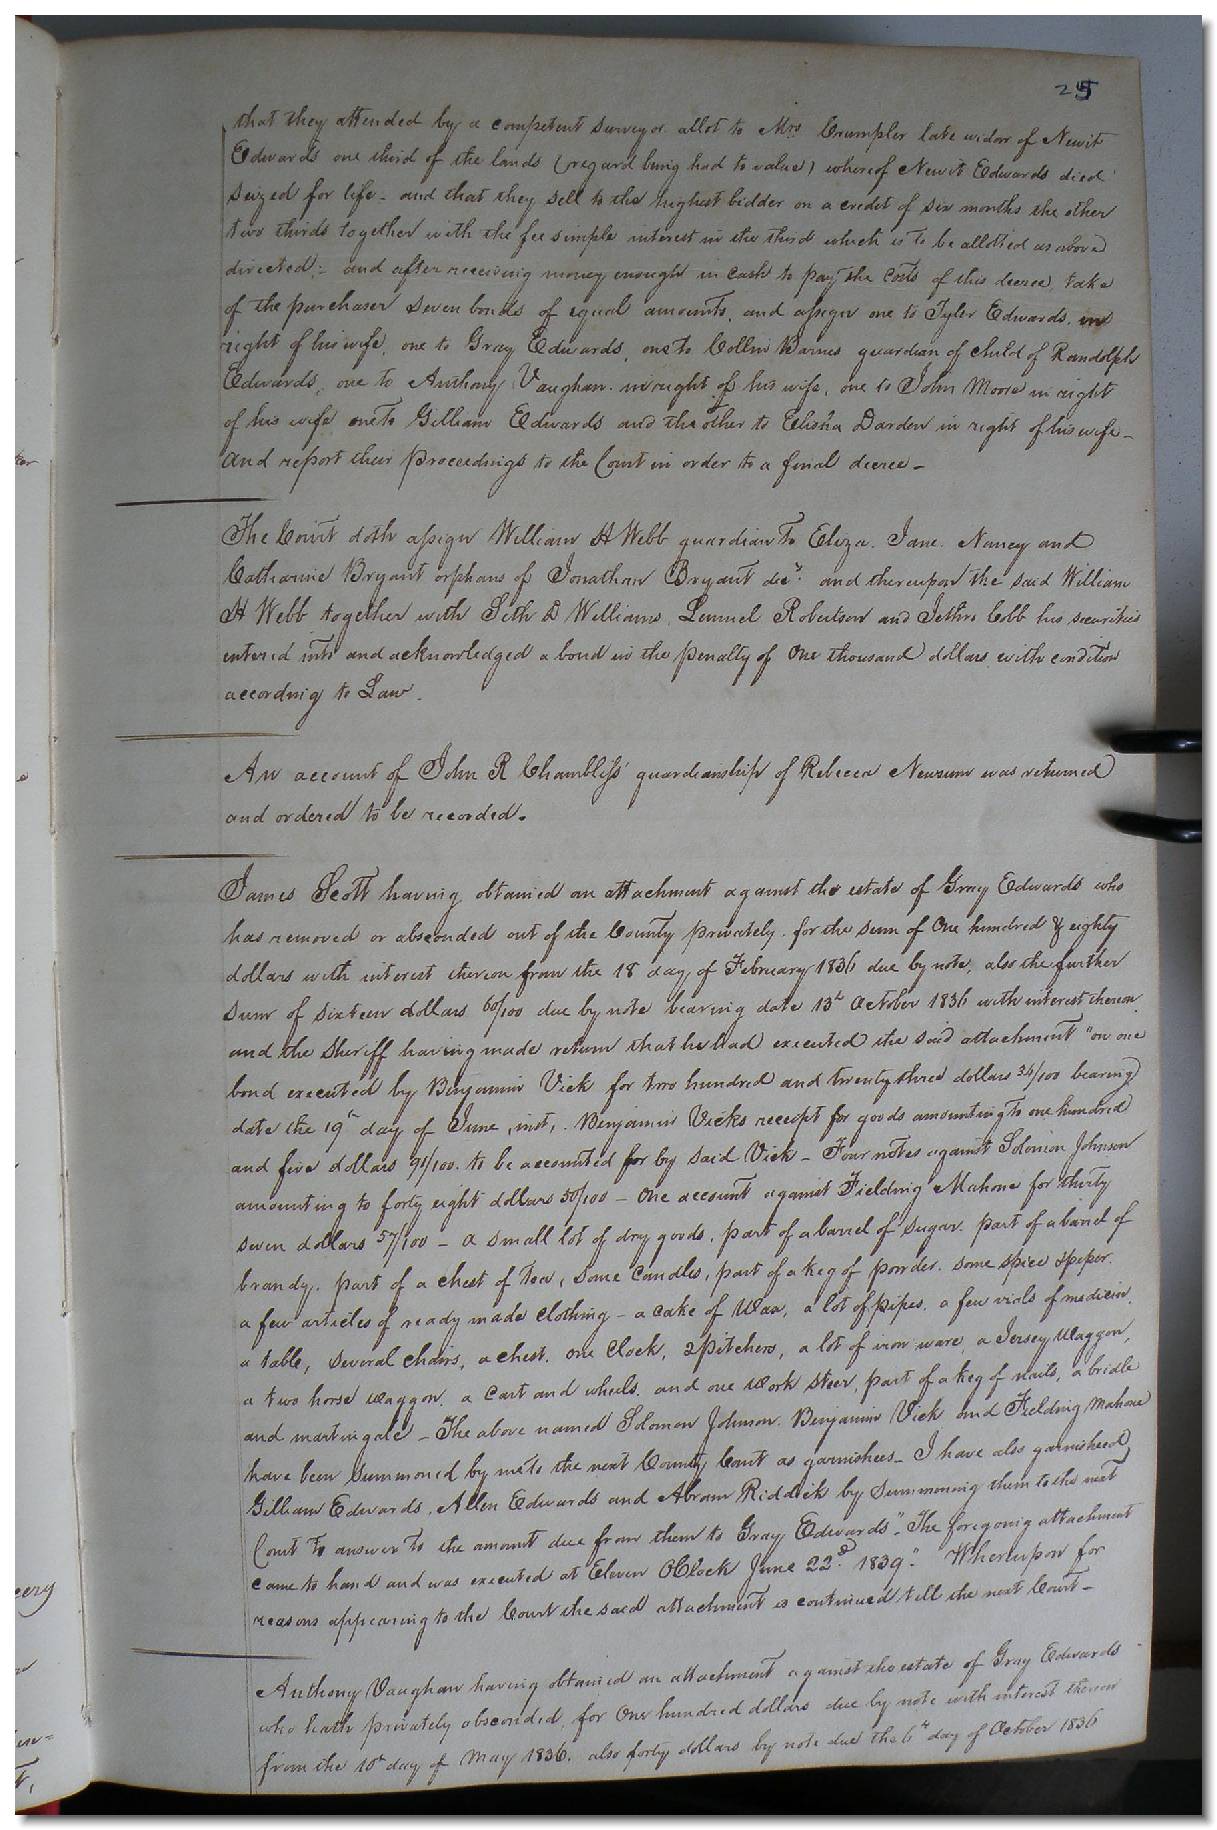 25
that they attended by a competent surveyor allot to Mrs Crumpler late widow of Newit
Edwards one third of the lands (regard being had to value) whereof Newit Edwards died
seized for life - and that they sell to the highest bidder on a credit of six months the other
two thirds together with the fee simple interest in the third which is to be allotted as above
directed:- and after receiving money enough in cash to pay the costs of this decree, take
of the purchaser seven bonds of equal amounts, and assign one to Tyler Edwards, in
right of his wife, one to Gray Edwards, one to Collin Barnes guardian of child of Randolph
Edwards, one to Anthony Vaughan in right of his wife, one to John Moore in right
of his wife one to Gilliam Edwards and the other to Elisha Darden in right of his wife -
and report their proceedings to the Court in order to a final decree -
The Court doth assign William H Webb guardian to Eliza, Jane, Nancy and
Catharine Bryant orphans of Jonathan Bryant decd. and thereupon the said William
H Webb together with Seth D Williams, Lemuel Robertson and Jethro Cobb his securities
entered into and acknowledged a bond in the penalty of One thousand dollars with condition
according to Law.
An account of John R Chambliss' guardianship of Rebecca Newsum was returned
and ordered to be recorded.
James Scott having obtained an attachment against the estate of Gray Edwards who
has removed or absconded out of the County privately for the sum of One hundred & eighty
dollars with interest thereon from the 18 day of February 1836 due by note, also the further
sum of sixteen dollars 60/100 due by note bearing date 13th October 1836 with interest thereon
and the Sheriff having made return that he had executed the said attachment "on one
bond executed by Benjamin Vick for two hundred and twenty three dollars 36/100 bearing
date the 19th day of June, inst,. Benjamin Vicks receipt for goods amounting to one hundred
and five dollars 91/100. to be accounted for by said Vick - Four notes against Solomon Johnson
amounting to forty eight dollars 50/100 - One account against Fielding Mahone for thirty
seven dollars 57/100 - a small lot of dry goods, part of a barrel of sugar, part of a barrel of
brandy, part of a chest of Tea, some candles, part of a keg of powder, some spice & peper.
a few articles of ready made clothing - a cake of Wax, a lot of pipes, a few vials of medicin,
a table, several chairs, a chest, one Clock, 2 pitchers, a lot of iron ware, a Jersey Waggon,
a two horse waggon, a cart and wheels, and one work steer, part of a keg of nails, a bridle
and martingale - The above named Solomon Johnson, Benjamin Vick and Fielding Mahone
have been summoned by me to the next County Court as garnishees - I have also garnisheed
Gilliam Edwards, Allen Edwards and Abram Riddick by summoning them to the next
Court to answer to the amount due from them to Gray Edwards". "The foregoing attachment
came to hand and was executed at Eleven OClock June 22d. 1839." Whereupon for
reasons appearing to the Court the said attachment is continued till the next Court -
Anthony Vaughan having obtained an attachment against the estate of Gray Edwards
who hath privately absconded, for One hundred dollars due by note with interest thereon
from the 10th day of May 1836. also forty dollars by note due the 6th day of October 1836